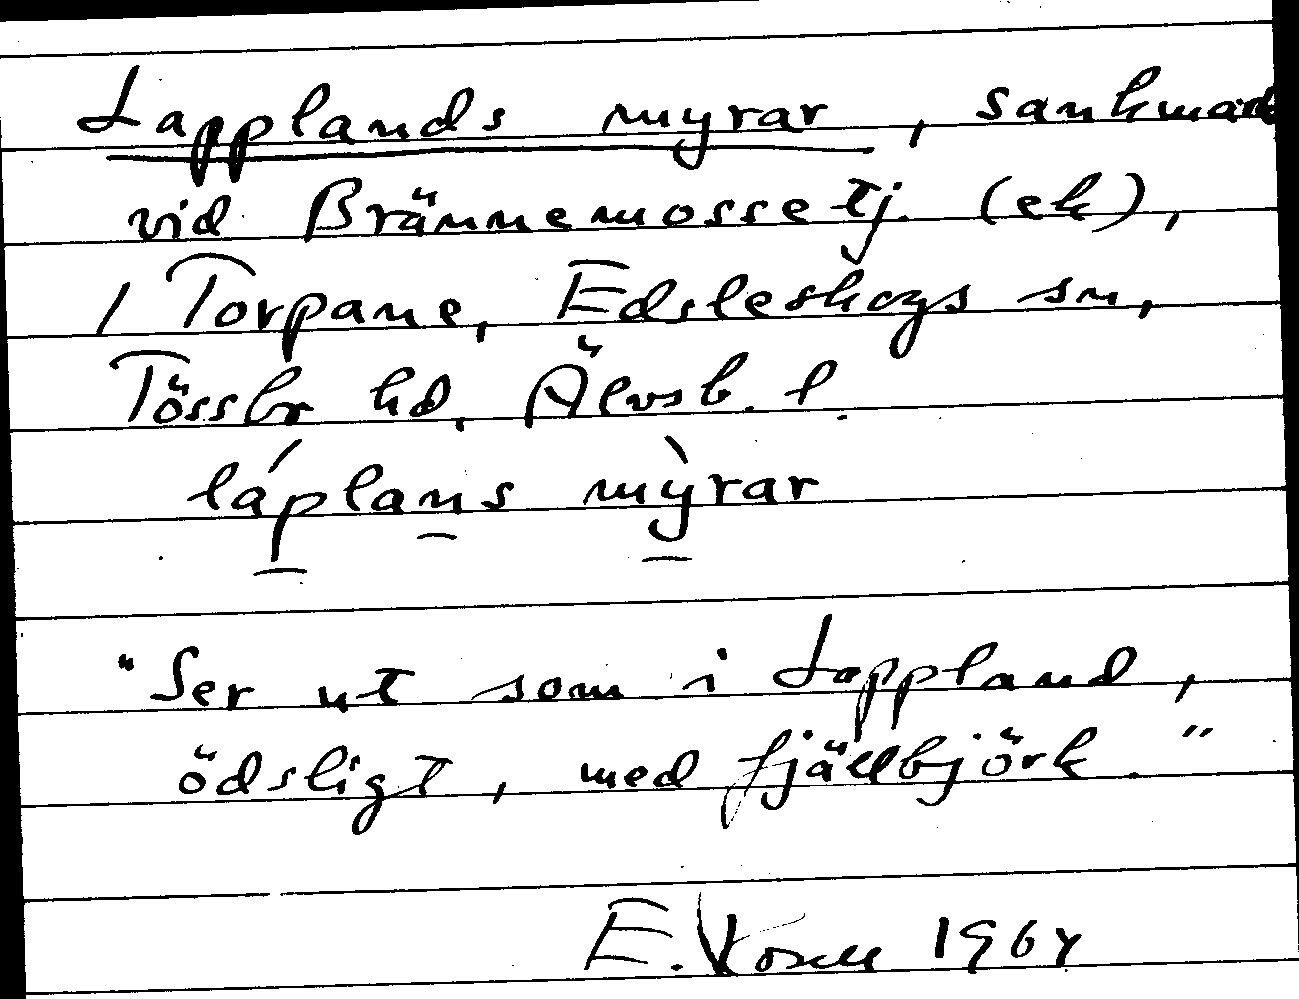 Lapplands myrar, sankmark
vid Brännemossetj. (ek),
/ Torpane, Edsleskogs sn,
Tössbo hd, Älvsb. l.
láplans mỳrar
"Ser ut som i Lappland,
ödsligt, med fjällbjörk."
E. 1964